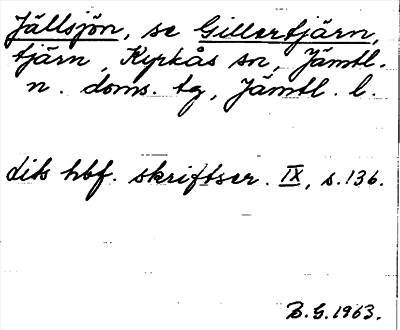 Jällsjön, se Gillertjärn,
tjärn, Kyrkås sn, Jämtl.
n. doms. tg, Jämtl. l.
diks hbf. skriftser. IX, s. 136.
B.G. 1963.